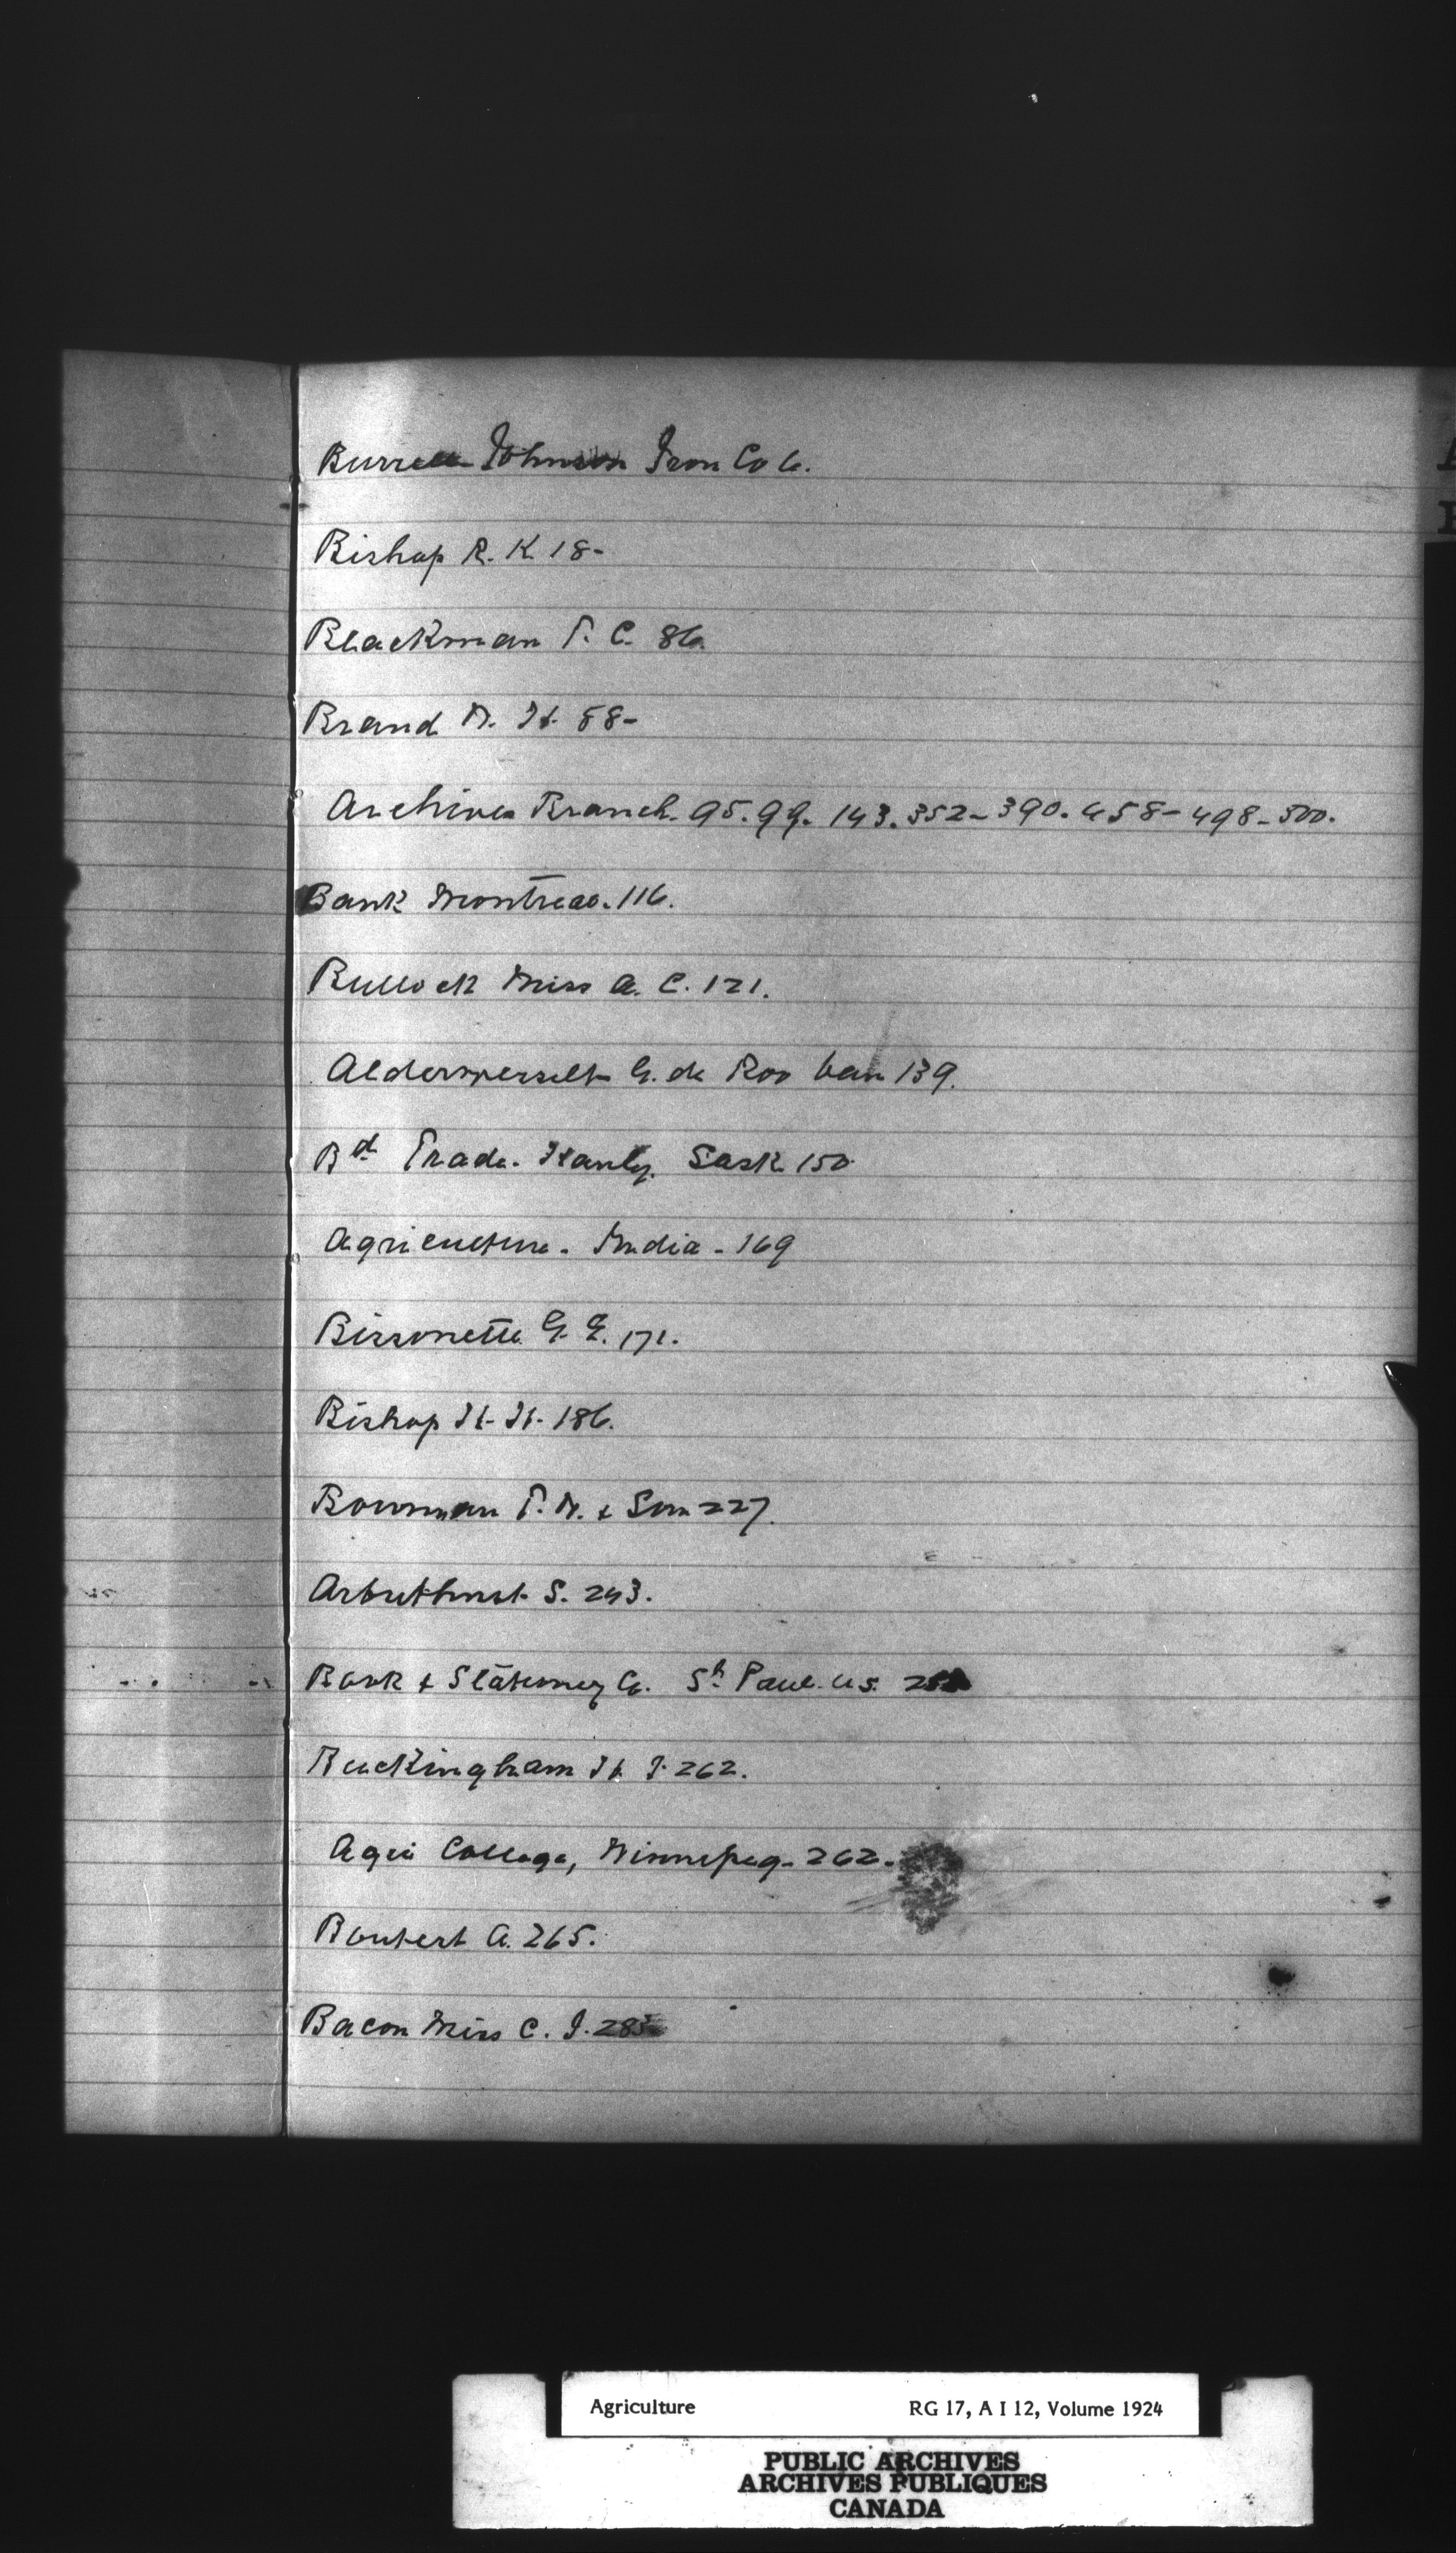 Burrell Johnson Iron Co 6.
Bishop R. K 18-
Blackman T. C. 86.
Brand W. H. 88-
Archives Branch. 95. 99. 143. 352- 390. 458- 498- 500.
Bank Montreal. 116.
Bullock Miss A. C. 121.
G. de Roo van 139.
Bd Trade. Hanley. Sask. 150
Agriculture. India - 169
Bissonette G. E. 171.
Bishop H. H. 186.
Bowman T. W. & Son 227.
Arbuthnot S. 243.
Book & Stationery Co. St. Paul. U S.
Buckingham H. J. 262.
Agri College, Winnepeg. 262.
A. 265.
Bacon Miss C. I. 285
Agriculture RG 17, A I 12, Volume 1924
PUBLIC ARCHIVES
ARCHIVES PUBLIQUES
CANADA